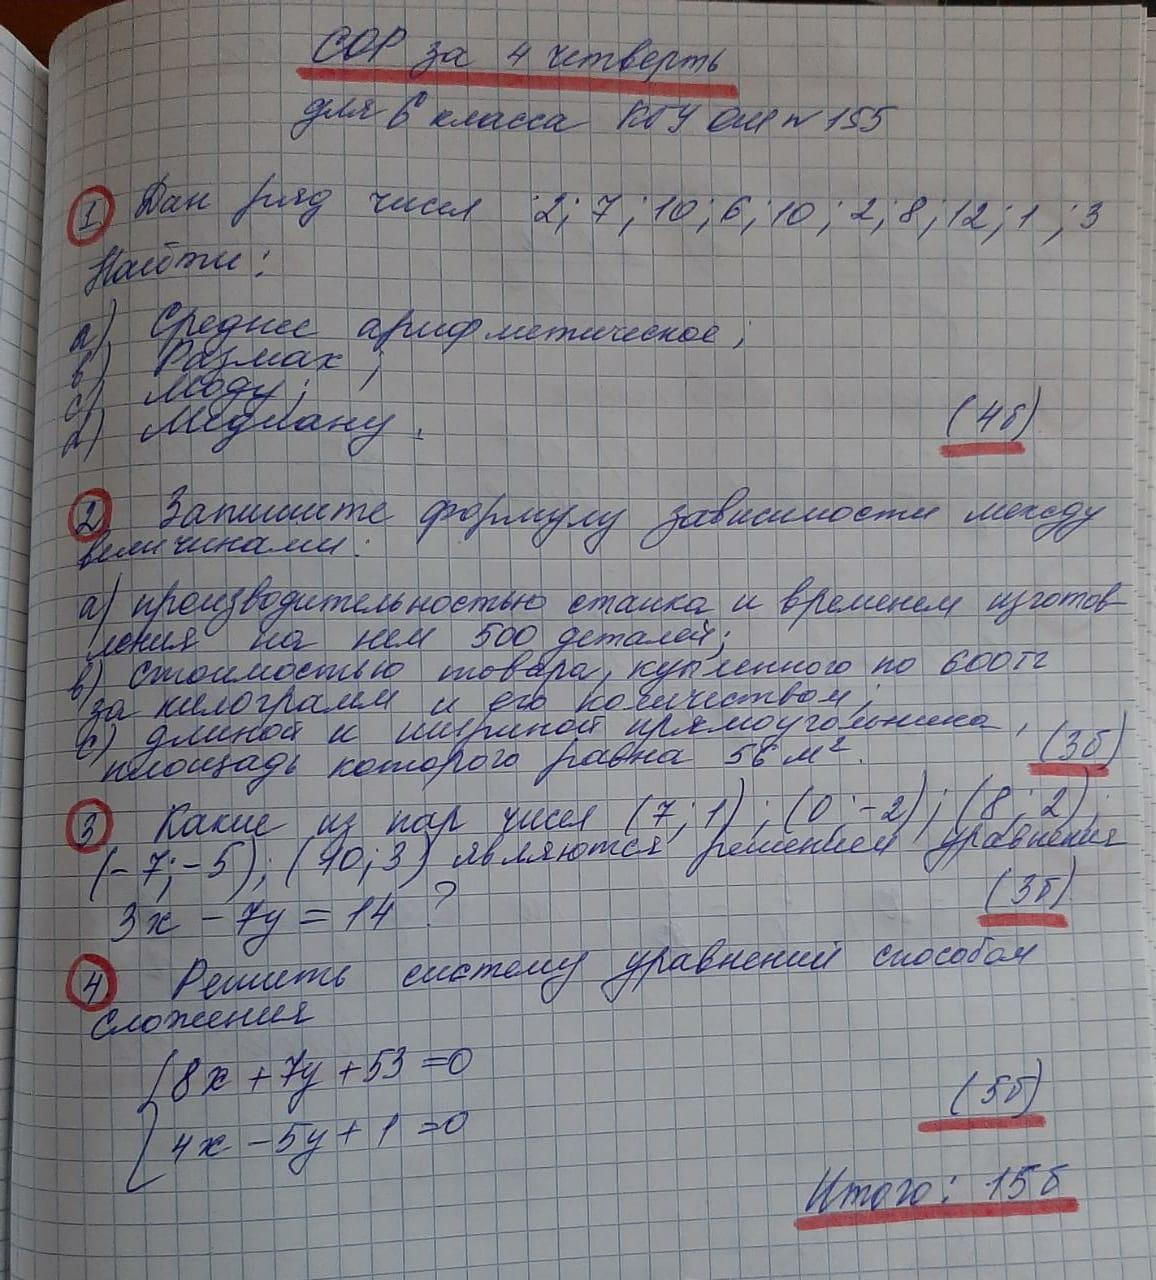 СОР за 4 четверть
для 6 класса КГУ ОШ N 155
1 Дан ряд чисел 2; 7; 10; 6; 10; 2; 8; 12; 1; 3
Найти:
a) Среднее арифметическое;
b) Размах;
c) Моду;
d) Медиану.
(4б)
2 Запишите формулу зависимости между
величинами:
a) производительностью станка и временем изготов-
ления на нем 500 деталей;
b) стоимостью товара, купленного по 600тг
за килограмм и его количеством;
c) длиной и шириной прямоугольника,
площадь которого равна 56 м².
(3б)
3 Какие из пар чисел (7; 1); (0; -2); (8; 2);
(-7; -5); (10; 3) являются решением уравнения
3x - 7y = 14 ?
(3б)
4 Решить систему уравнений способом
сложения
{ 8x + 7y + 53 = 0
4x - 5y + 1 = 0
(5б)
Итого: 15б